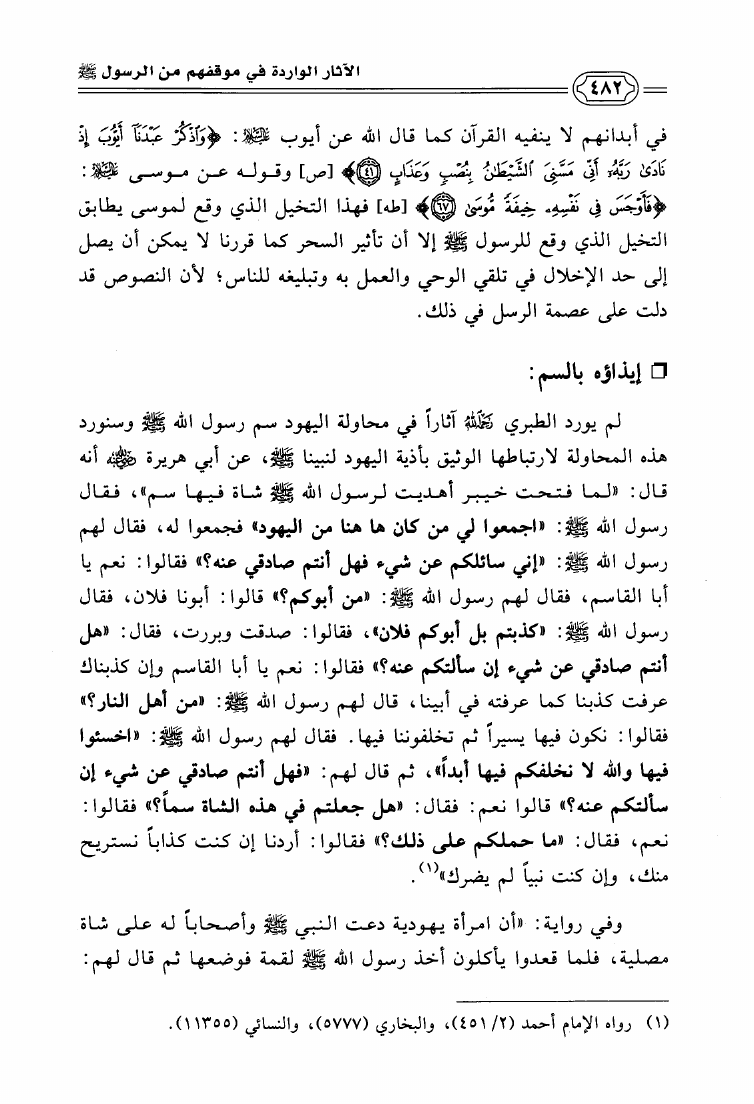 الآثار الواردة في موقفهم من الرسول ﷺ
٤٨٢
في أبدانهم لا ينفيه القرآن كما قال الله عن أيوب عليه السلام: ﴿وَٱذْكُرْ عَبْدَنَآ أَيُّوبَ إِذْ
نَادَىٰ رَبَّهُۥٓ أَنِّى مَسَّنِىَ ٱلشَّيْطَٰنُ بِنُصْبٍ وَعَذَابٍ ﴿٤١﴾﴾ [ص] وقوله عن موسى عليه السلام:
﴿فَأَوْجَسَ فِى نَفْسِهِۦ خِيفَةً مُّوسَىٰ ﴿٦٧﴾﴾ [طه] فهذا التخيل الذي وقع لموسى يطابق
التخيل الذي وقع للرسول ﷺ إلا أن تأثير السحر كما قررنا لا يمكن أن يصل
إلى حد الإخلال في تلقي الوحي والعمل به وتبليغه للناس؛ لأن النصوص قد
دلت على عصمة الرسل في ذلك.
❒ إيذاؤه بالسم:
لم يورد الطبري رحمه الله آثاراً في محاولة اليهود سم رسول الله ﷺ وسنورد
هذه المحاولة لارتباطها الوثيق بأذية اليهود لنبينا ﷺ، عن أبي هريرة رضي الله عنه أنه
قال: «لما فتحت خيبر أهديت لرسول الله ﷺ شاة فيها سم»، فقال
رسول الله ﷺ: «اجمعوا لي من كان ها هنا من اليهود» فجمعوا له، فقال لهم
رسول الله ﷺ: «إني سائلكم عن شيء فهل أنتم صادقي عنه؟» فقالوا: نعم يا
أبا القاسم، فقال لهم رسول الله ﷺ: «من أبوكم؟» قالوا: أبونا فلان، فقال
رسول الله ﷺ: «كذبتم بل أبوكم فلان»، فقالوا: صدقت وبررت، فقال: «هل
أنتم صادقي عن شيء إن سألتكم عنه؟» فقالوا: نعم يا أبا القاسم وإن كذبناك
عرفت كذبنا كما عرفته في أبينا، قال لهم رسول الله ﷺ: «من أهل النار؟»
فقالوا: نكون فيها يسيراً ثم تخلفوننا فيها. فقال لهم رسول الله ﷺ: «اخسئوا
فيها والله لا نخلفكم فيها أبداً»، ثم قال لهم: «فهل أنتم صادقي عن شيء إن
سألتكم عنه؟» قالوا نعم: فقال: «هل جعلتم في هذه الشاة سماً؟» فقالوا:
نعم، فقال: «ما حملكم على ذلك؟» فقالوا: أردنا إن كنت كذاباً نستريح
منك، وإن كنت نبياً لم يضرك»(١).
وفي رواية: «أن امرأة يهودية دعت النبي ﷺ وأصحاباً له على شاة
مصلية، فلما قعدوا يأكلون أخذ رسول الله ﷺ لقمة فوضعها ثم قال لهم:
(١) رواه الإمام أحمد (٤٥١/٢)، والبخاري (٥٧٧٧)، والنسائي (١١٣٥٥).